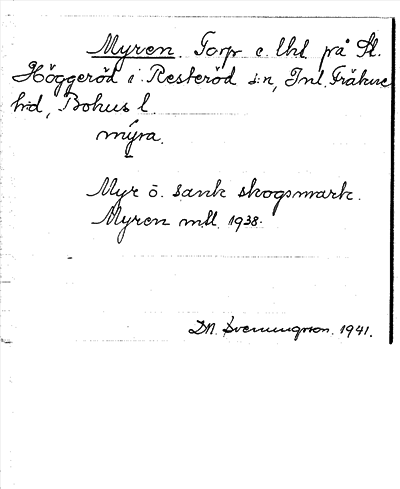 Myren. Torp o. lht. på St.
Höggeröd i Resteröd s:n, Inl. Fräkne
h:d, Bohus l.
mýra.
Myr o. sank skogsmark.
Myren mtl. 1938.
D.N. Svenungsson. 1941.